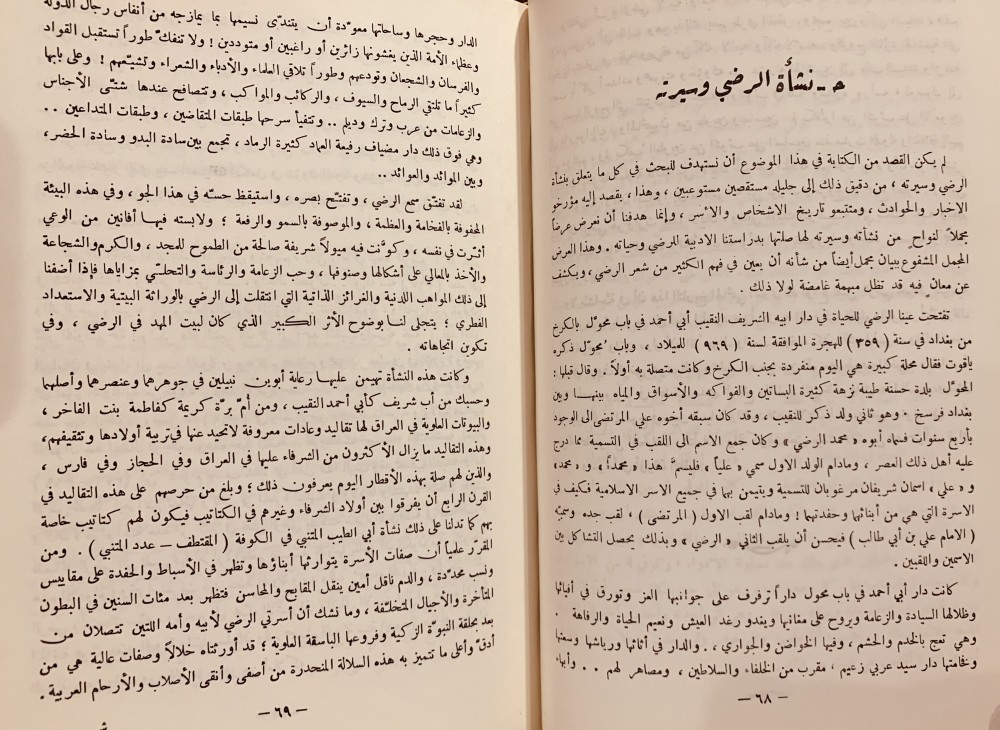 ح - نشأة الرضي وسيرته
لم يكن القصد من الكتابة في هذا الموضوع أن نستهدف للبحث في كل ما يتعلق بنشأة
الرضي وسيرته ، من دقيق ذلك إلى جليله مستقصين مستوعبين ، وهذا ، يقصد إليه مؤرخو
الاخبار والحوادث ، ومتتبعو تاريخ الاشخاص والأسر ، وإنما هدفنا أن نعرض عرضاً
مجملاً لنواح من نشأته وسيرته لها صلتها بدراستنا الادبية للرضي وحياته . وهذا العرض
المجمل المشفوع ببيان مجمل أيضاً من شأنه أن يعين في فهم الكثير من شعر الرضي ، ويكشف
عن معان فيه قد تظل مبهمة غامضة لولا ذلك .
تفتحت عينا الرضي للحياة في دار ابيه الشريف النقيب أبي أحمد في باب محوّل بالكرخ
من بغداد في سنة ( ٣٥٩ ) للهجرة الموافقة لسنة ( ٩٦٩ ) للميلاد ، وباب ُمحوّل ذكره
ياقوت فقال محلة كبيرة هي اليوم منفردة بجنب الكرخ وكانت متصلة به أولاً . وقال قبلها :
المحوّل بلدة حسنة طيبة نزهة كثيرة البساتين والفواكه والأسواق والمياه بينها وبين
بغداد فرسخ . وهو ثاني ولد ذكر للنقيب ، وقد كان سبقه أخوه علي المرتضى الى الوجود
بأربع سنوات فسماه أبوه « محمد الرضي » وكان جمع الاسم الى اللقب في التسمية مما درج
عليه أهل ذلك العصر ، ومادام الولد الاول سمي « علياً » فليسمَّ هذا « محمداً » و « محمد »
و « علي » اسمان شريفان مرغوبان للتسمية ويتيمن بهما في جميع الاسر الاسلامية فكيف في
الاسرة التي هي من أبنائها وحفدتهما ! ومادام لقب الاول ( المرتضى ) ، لقب جده وسميّه
( الامام علي بن أبي طالب ) فيحسن أن يلقب الثاني « الرضي » وبذلك يحصل التشاكل بين
الاسمين واللقبين .
كانت دار أبي أحمد في باب محول داراً ترفرف على جوانبها العز وتورق في أفيائها
وظلالها السيادة والزعامة ويروح على مغانيها ويندو رغد العيش ونعيم الحياة والرفاهة .
وهي تعج بالخدم والحشم ، وفيها الخواضن والجواري ، . والدار في أثاثها ورياشها وسعتها
وفخامتها دار سيد عربي زعيم ، مقرب من الخلفاء والسلاطين ، ومصاهر لهم . . وأبهاء
— ٦٨ —
الدار وحجرها وساحاتها معوّدة أن يتندّى نسيمها بما يمازجه من أنفاس رجال الدولة
وعظماء الأمة الذين يغشونها زائرين أو راغبين أو متوددين ! ولا تنفكّ طوراً تستقبل القواد
والفرسان والشجعان وتودعهم وطوراً تلاقي العلماء والأدباء والشعراء وتشيّعهم ! وعلى بابها
كثيراً ما تلتقي الرماح والسيوف ، والركائب والمواكب ، وتتصافح عندها شتّى الأجناس
والزعامات من عرب وترك وديلم .. وتتفيأ سرحها طبقات المتقاضين ، وطبقات المتداعين ..
وهي فوق ذلك دار مضياف رفيعة العماد كثيرة الرماد ، تجمع بين سادة البدو وسادة الحضر ،
وبين الموائد والعوائد ..
لقد تفتّق سمع الرضي ، وتفتّح بصره ، واستيقظ حسّه في هذا الجو ، وفي هذه البيئة
المحفوفة بالفخامة والعظمة ، والموصوفة بالسمو والرفعة ؛ ولابسته فيها أفانين من الوعي
أثّرت في نفسه ، وكوّنت فيه ميولاً شريفة صالحة من الطموح للمجد ، والكرم والشجاعة
والأخذ بالمعالي على أشكالها وصنوفها ، وحب الزعامة والرئاسة والتحلّي بمزاياها فإذا أضفنا
إلى ذلك المواهب اللدنية والغرائز الذاتية التي انتقلت إلى الرضي بالوراثة البيتية والاستعداد
الفطري ؛ يتجلى لنا بوضوح الأثر الكبير الذي كان لبيت المهد في الرضي ، وفي
تكوين اتجاهاته .
وكانت هذه النشأة تهيمن عليها رعاية أبوين نبيلين في جوهرهما وعنصرهما وأصلهما
وحسبك من أب شريف كأبي أحمد النقيب ، ومن أمّ برّة كريمة كفاطمة بنت الفاخر ،
والبيوتات العلوية في العراق لها تقاليد وعادات معروفة لاتحيد عنها في تربية أولادها وتثقيفهم ،
وهذه التقاليد ما يزال الأكثرون من الشرفاء عليها في العراق وفي الحجاز وفي فارس ،
والذين لهم صلة بهذه الأقطار اليوم يعرفون ذلك ؛ وبلغ من حرصهم على هذه التقاليد في
القرن الرابع أن يفرقوا بين أولاد الشرفاء وغيرهم في الكتاتيب فيكون لهم كتاتيب خاصة
بهم كما تدلنا على ذلك نشأة أبي الطيب المتنبي في الكوفة ( المقتطف — عدد المتنبي ) . ومن
المقرّر علمياً أن صفات الأسرة يتوارثها أبناؤها وتظهر في الأسباط والحفدة على مقاييس
ونسب محدّدة ، والدم ناقل أمين ينقل المقابح والمحاسن فتظهر بعد مئات السنين في البطون
المتأخرة والأجيال المتخلّفة ، وما نشك أن أسرتي الرضي لأبيه وأمه اللتين تتصلان من
بعد بحلقة النبوّة الزكية وفروعها الباسقة العلوية ؛ قد أورثتاه خلالاً وصفات عالية هي من
أدقّ وأعلى ما تتميز به هذه السلالة المنحدرة من أصفى وأنقى الأصلاب والأرحام العربية .
— ٦٩ —